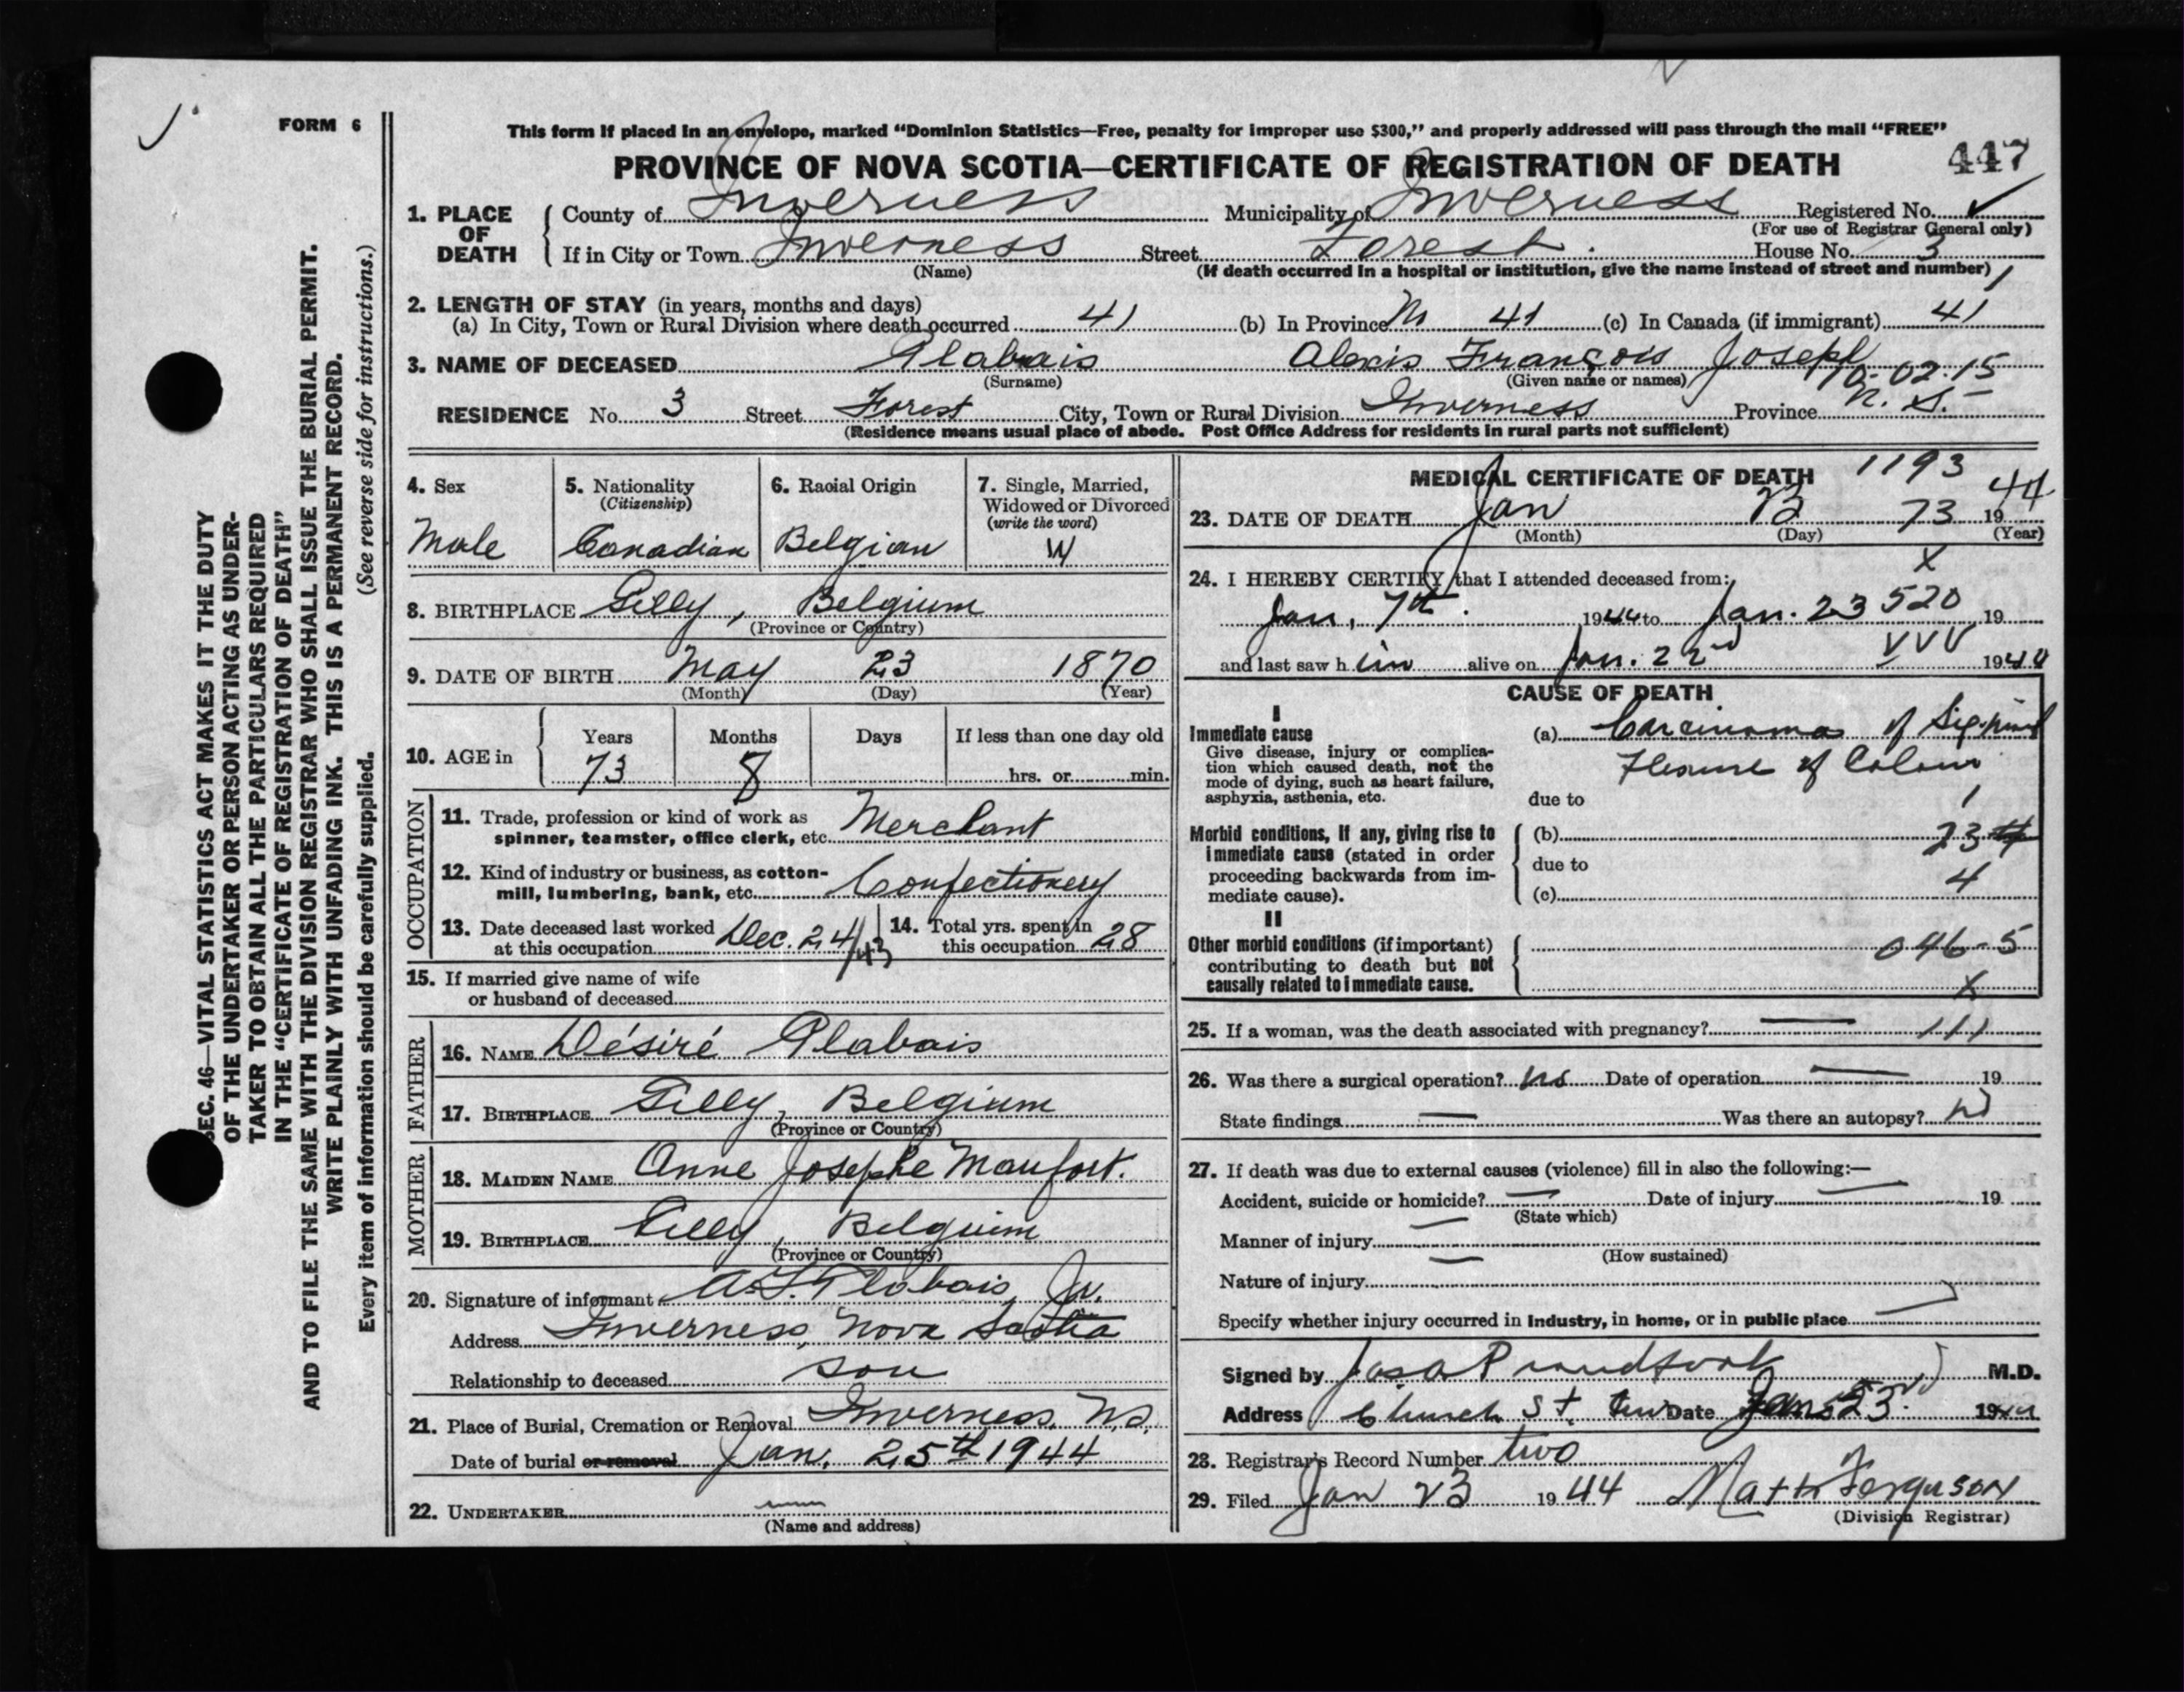 FORM 6
This form if placed in an envelope, marked "Dominion Statistics—Free, penalty for improper use $300," and properly addressed will pass through the mail "FREE"
PROVINCE OF NOVA SCOTIA—CERTIFICATE OF REGISTRATION OF DEATH 447
1. PLACE OF DEATH County of Inverness Municipality of Inverness Registered No. ✓
(For use of Registrar General only)
If in City or Town Inverness Street Forest. House No. 3
(Name) (If death occurred in a hospital or institution, give the name instead of street and number)
2. LENGTH OF STAY (in years, months and days)
(a) In City, Town or Rural Division where death occurred 41 (b) In Province 41 (c) In Canada (if immigrant) 41
3. NAME OF DECEASED Plabais Alexis François Joseph
(Surname) (Given name or names) 10-02-15
RESIDENCE No. 3 Street Forest City, Town or Rural Division Inverness Province N. S.
(Residence means usual place of abode. Post Office Address for residents in rural parts not sufficient)
4. Sex Male
5. Nationality (Citizenship) Canadian
6. Racial Origin Belgian
7. Single, Married, Widowed or Divorced (write the word) W
8. BIRTHPLACE Gilly, Belgium
(Province or Country)
9. DATE OF BIRTH May 23 1870
(Month) (Day) (Year)
10. AGE in Years 73 Months 8 Days If less than one day old hrs. or min.
OCCUPATION
11. Trade, profession or kind of work as spinner, teamster, office clerk, etc. Merchant
12. Kind of industry or business, as cotton-mill, lumbering, bank, etc. Confectionery
13. Date deceased last worked at this occupation Dec. 24/43
14. Total yrs. spent in this occupation 28
15. If married give name of wife or husband of deceased
FATHER
16. NAME Désiré Plabais
17. BIRTHPLACE Gilly, Belgium
(Province or Country)
MOTHER
18. MAIDEN NAME Anne Josephe Maufort.
19. BIRTHPLACE Gilly, Belgium
(Province or Country)
20. Signature of informant A. F. Plabais, Jr.
Address Inverness, Nova Scotia
Relationship to deceased son
21. Place of Burial, Cremation or Removal Inverness, N.S.
Date of burial or removal Jan. 25th 1944
22. UNDERTAKER
(Name and address)
MEDICAL CERTIFICATE OF DEATH 1193
23. DATE OF DEATH Jan 23 73 1944
(Month) (Day) (Year)
X
24. I HEREBY CERTIFY that I attended deceased from:
Jan. 7th. 1944 to Jan. 23 520 19
and last saw him alive on Jan. 22nd VVV 1944
CAUSE OF DEATH
I
Immediate cause
Give disease, injury or complication which caused death, not the mode of dying, such as heart failure, asphyxia, asthenia, etc.
(a) Carcinoma of Sigmoid
Flexure of Colon
due to 1
Morbid conditions, if any, giving rise to immediate cause (stated in order proceeding backwards from immediate cause).
(b) 23
due to 4
(c)
II
Other morbid conditions (if important) contributing to death but not causally related to immediate cause.
046-5
X
25. If a woman, was the death associated with pregnancy? — 111
26. Was there a surgical operation? no Date of operation — 19
State findings — Was there an autopsy? no
27. If death was due to external causes (violence) fill in also the following:—
Accident, suicide or homicide? — Date of injury — 19
(State which)
Manner of injury —
(How sustained)
Nature of injury —
Specify whether injury occurred in industry, in home, or in public place
Signed by M.D.
Address Church St. Date Jan 23rd 1944
28. Registrar's Record Number two
29. Filed Jan 23 1944 Matt Ferguson
(Division Registrar)
SEC. 46—VITAL STATISTICS ACT MAKES IT THE DUTY
OF THE UNDERTAKER OR PERSON ACTING AS UNDER-
TAKER TO OBTAIN ALL THE PARTICULARS REQUIRED
IN THE "CERTIFICATE OF REGISTRATION OF DEATH"
AND TO FILE THE SAME WITH THE DIVISION REGISTRAR WHO SHALL ISSUE THE BURIAL PERMIT.
WRITE PLAINLY WITH UNFADING INK. THIS IS A PERMANENT RECORD.
Every item of information should be carefully supplied. (See reverse side for instructions.)